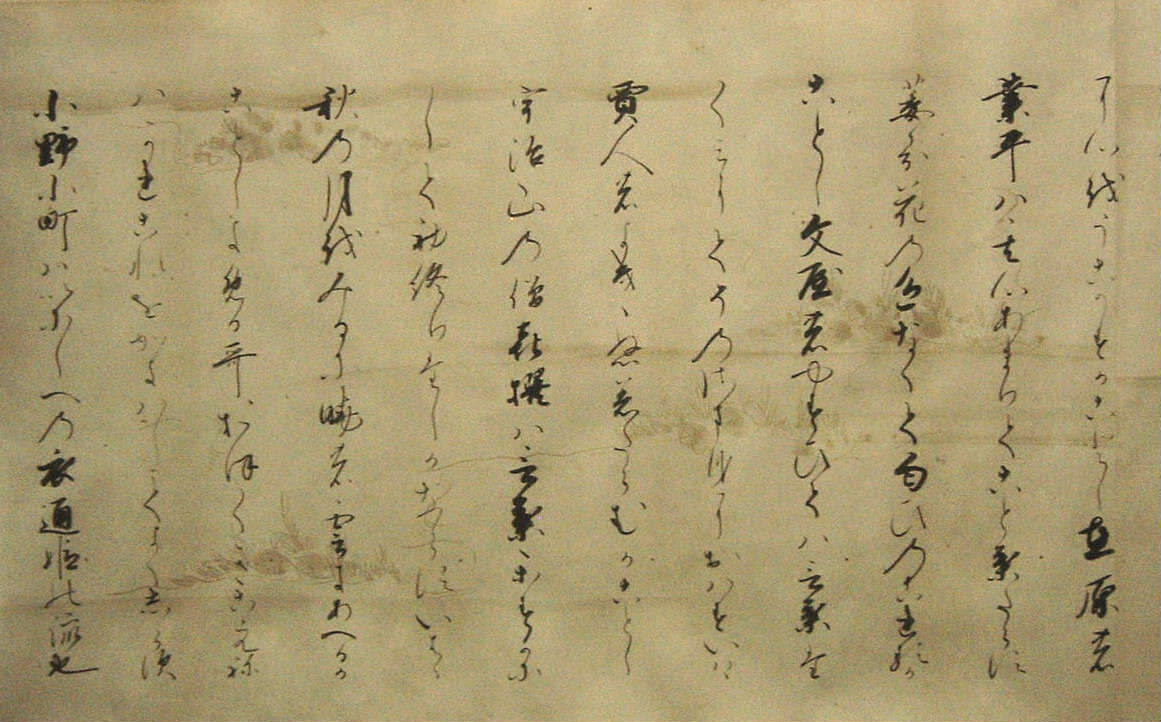 に心をうこかすかことし在原の
業平は其心あまりてこと葉たらす
萎る花の色なくて匂ひのこれるか
ことし文屋のやすひては言葉た
くみにてそのさま身におはすいはゝ
賈人のよき、きぬきたらむかことし
宇治山の僧喜撰は言葉かすかに
して初終りたしかならすいはゝ
秋の月をみるに暁の雲にあへるか
ことしよめる哥おほくきこえね
はかれこれをかよはしてよくしらす
小野小町はいにしへの衣通姫の流也